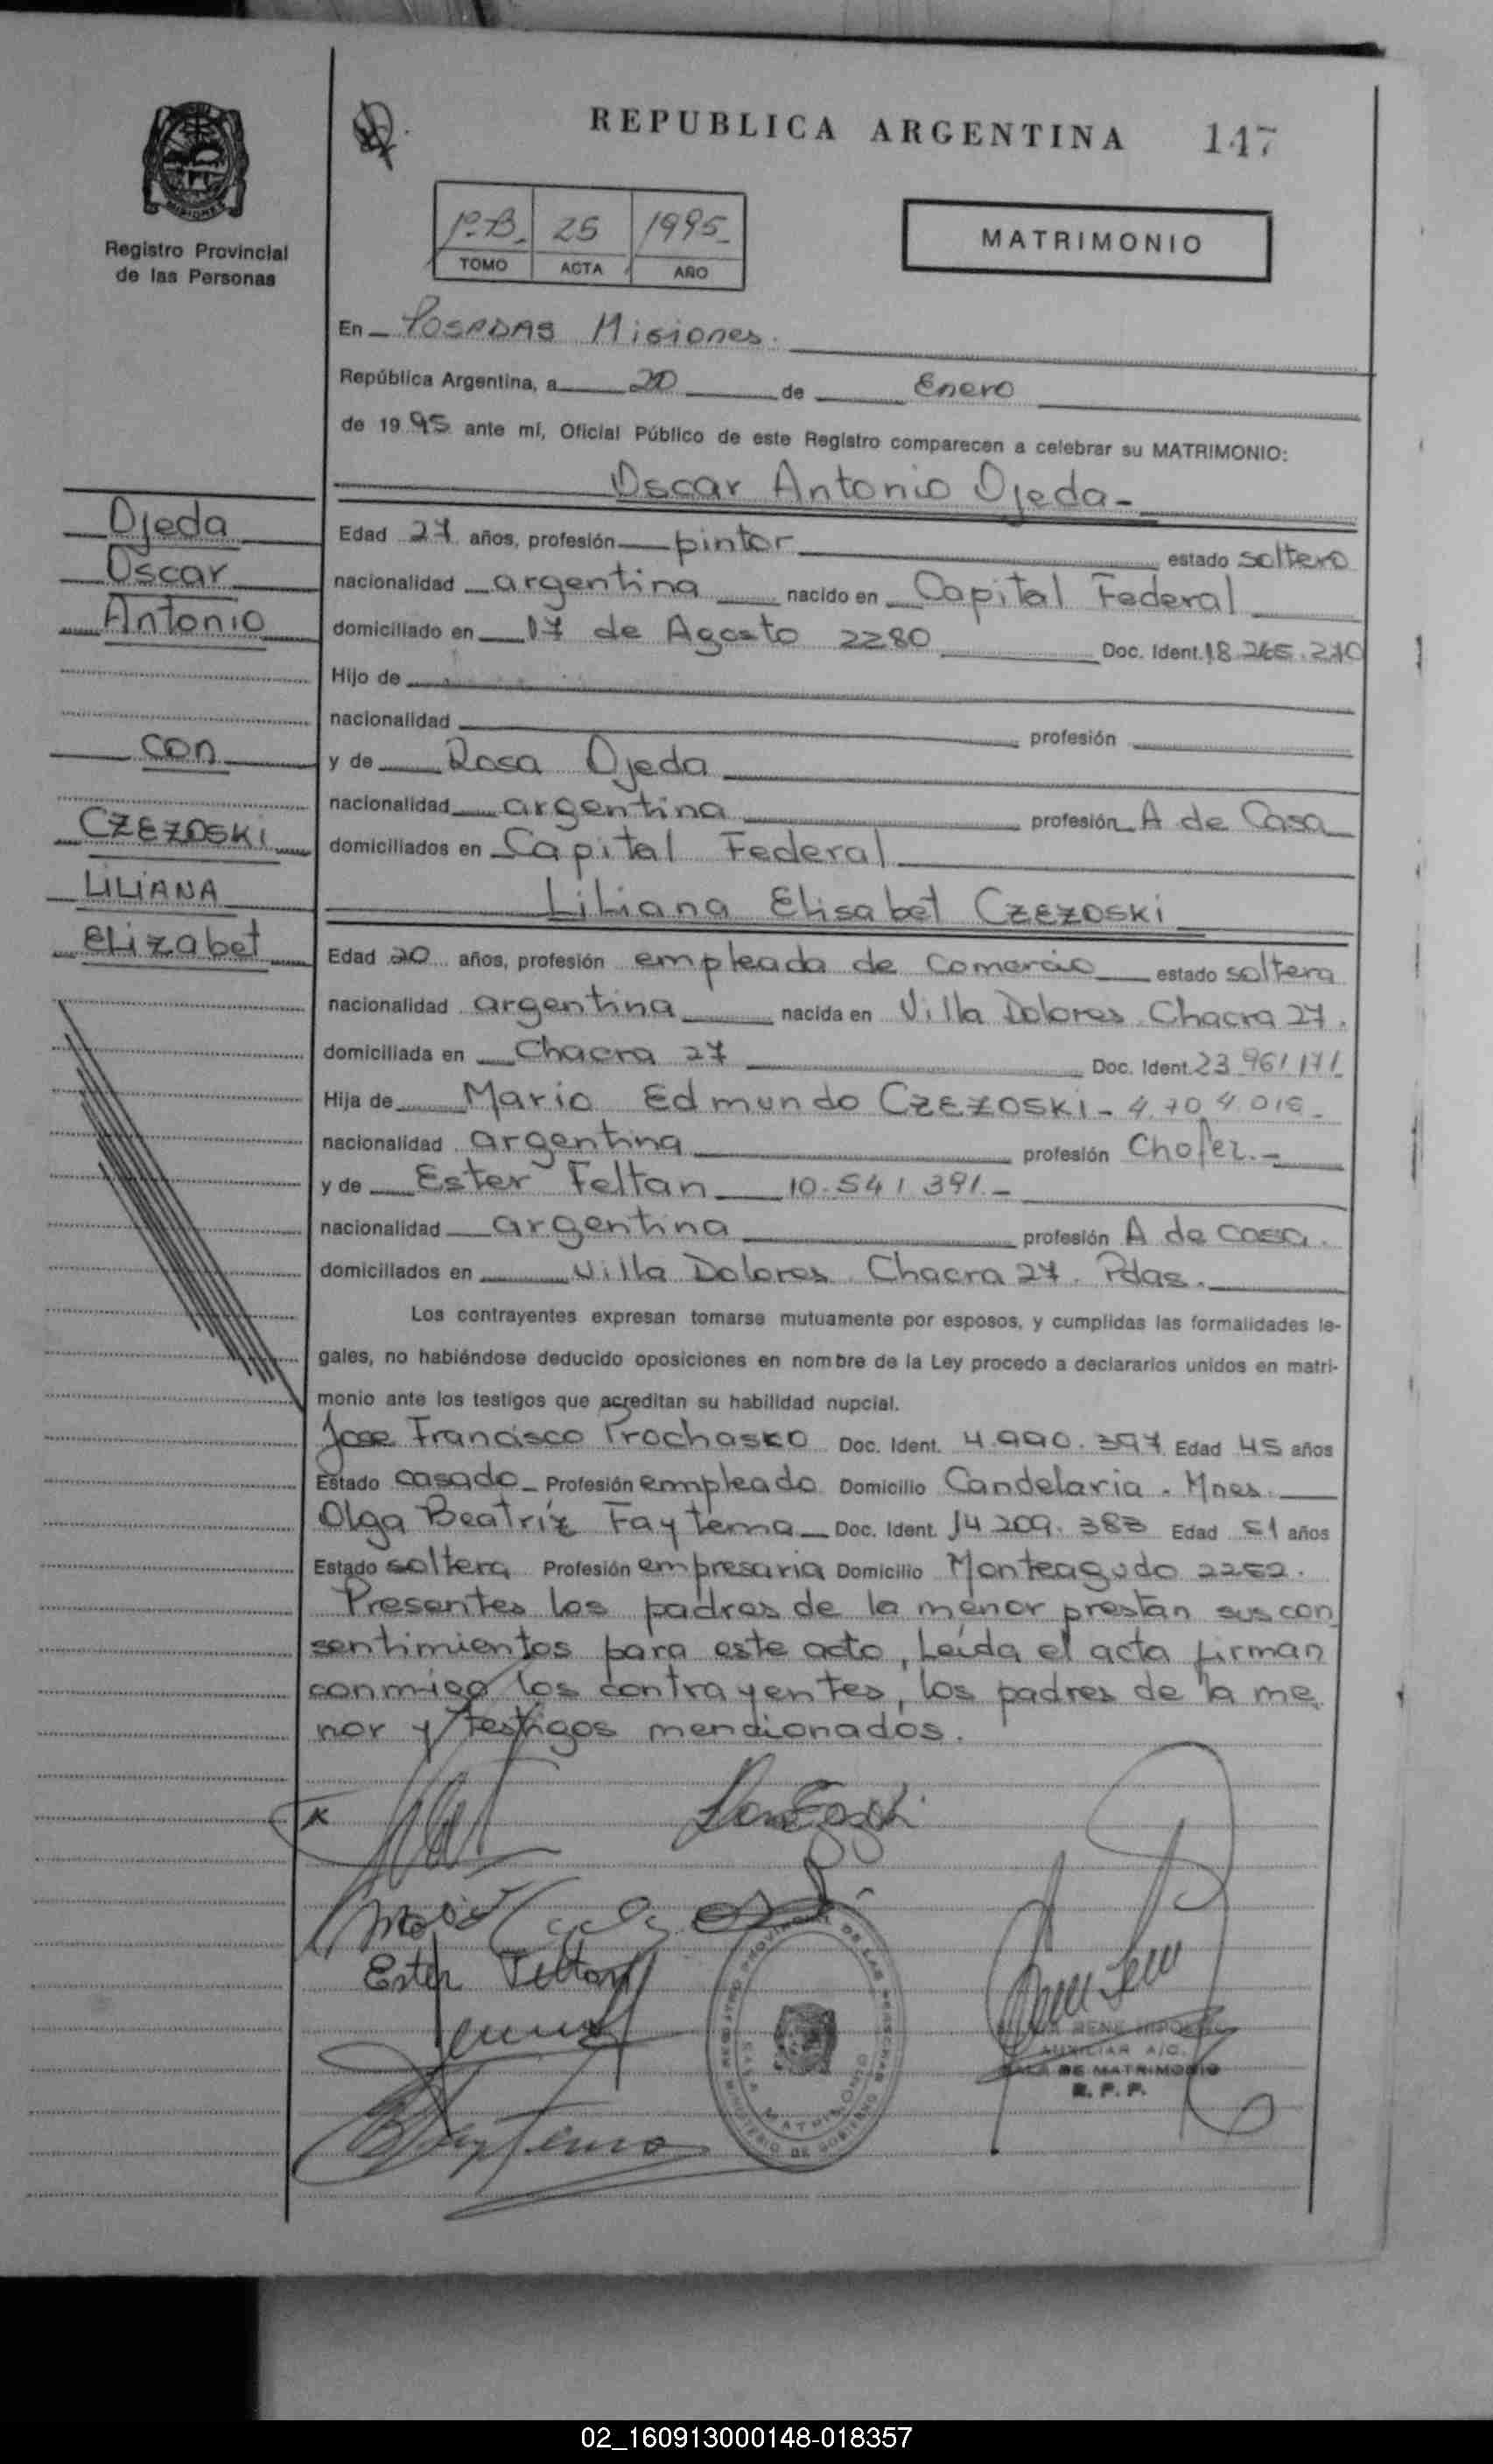 REPUBLICA ARGENTINA 147
MISIONES
Registro Provincial
de las Personas
1º B. 25 1995
TOMO ACTA AÑO
MATRIMONIO
En Posadas Misiones.
República Argentina, a 20 de Enero
de 1995 ante mí, Oficial Público de este Registro comparecen a celebrar su MATRIMONIO:
Oscar Antonio Ojeda
Ojeda
Oscar
Antonio
con
CZEZOSKI
LILIANA
Elizabet
Edad 27 años, profesión pintor estado soltero
nacionalidad argentina nacido en Capital Federal
domiciliado en 17 de Agosto 2280 Doc. Ident. 18.265.210
Hijo de
nacionalidad profesión
y de Rosa Ojeda
nacionalidad argentina profesión A de Casa
domiciliados en Capital Federal
Liliana Elisabet CZEZOSKI
Edad 20 años, profesión empleada de Comercio estado soltera
nacionalidad argentina nacida en Villa Dolores Chacra 27.
domiciliada en Chacra 27 Doc. Ident. 23.961.171
Hija de Mario Edmundo CZEZOSKI - 4.704.016
nacionalidad argentina profesión Chofer.-
y de Ester Feltan 10.541.391.-
nacionalidad argentina profesión A de casa.
domiciliados en Villa Dolores Chacra 27. Pdas.
Los contrayentes expresan tomarse mutuamente por esposos, y cumplidas las formalidades le-
gales, no habiéndose deducido oposiciones en nombre de la Ley procedo a declararlos unidos en matri-
monio ante los testigos que acreditan su habilidad nupcial.
Jose Francisco Prochasko Doc. Ident. 4.990.397 Edad 45 años
Estado casado Profesión empleado Domicilio Candelaria - Mnes.
Olga Beatríz Faytema Doc. Ident. 14.209.383 Edad 51 años
Estado soltera Profesión empresaria Domicilio Monteagudo 2252.
Presentes los padres de la menor prestan sus con
sentimientos para este acto, Leída el acta firman
conmigo los contrayentes, los padres de la me
nor y testigos mencionados.
Ester Feltan
REGISTRO PROVINCIAL DE LAS PERSONAS
SALA MATRIMONIO
MINISTERIO DE GOBIERNO
RENE
AUXILIAR A/C.
SALA DE MATRIMONIO
R. P. P.
02_160913000148-018357